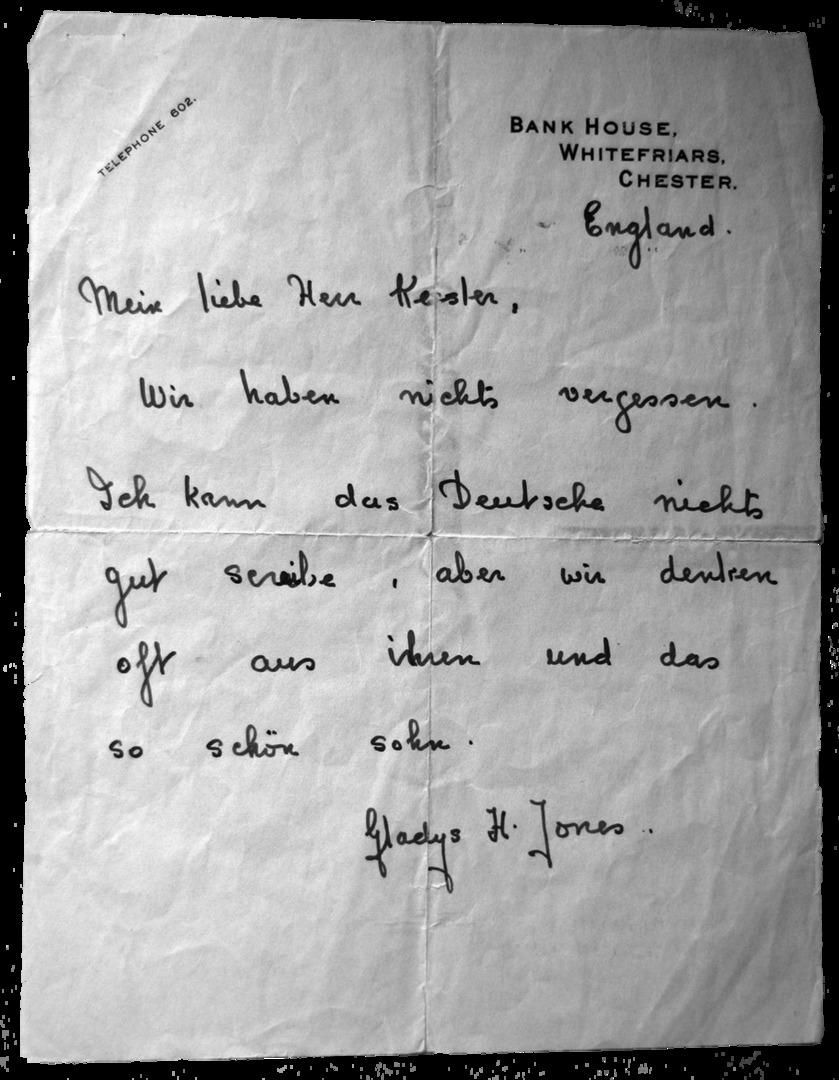 TELEPHONE 602.
BANK HOUSE,
WHITEFRIARS,
CHESTER.
England.
Mein liebe Herr Kesler,
Wir haben nichts vergessen.
Ich kann das Deutsche nichts
gut screibe, aber wir denken
oft aus ihnen und das
so schön sohn.
Gladys H. Jones.